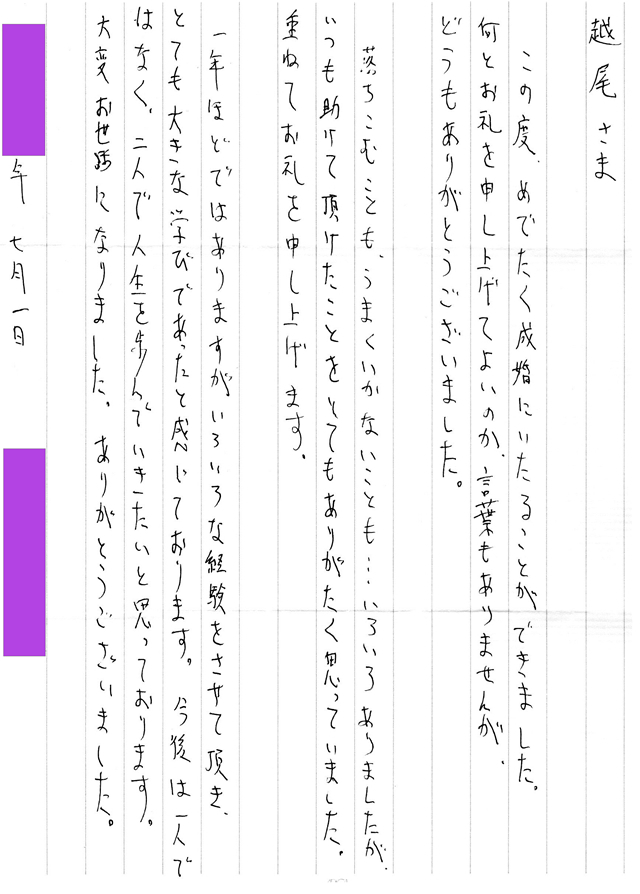 越尾さま
この度、めでたく成婚にいたることができました。
何とお礼を申し上げてよいのか、言葉もありませんが、
どうもありがとうございました。
落ちこむことも、うまくいかないことも…いろいろありましたが、
いつも助けて頂けたことをとてもありがたく思っていました。
重ねてお礼を申し上げます。
一年ほどではありますがいろいろな経験をさせて頂き、
とても大きな学びであったと感じております。今後は一人で
はなく、二人で人生を歩んでいきたいと思っております。
大変お世話になりました。ありがとうございました。
年七月一日